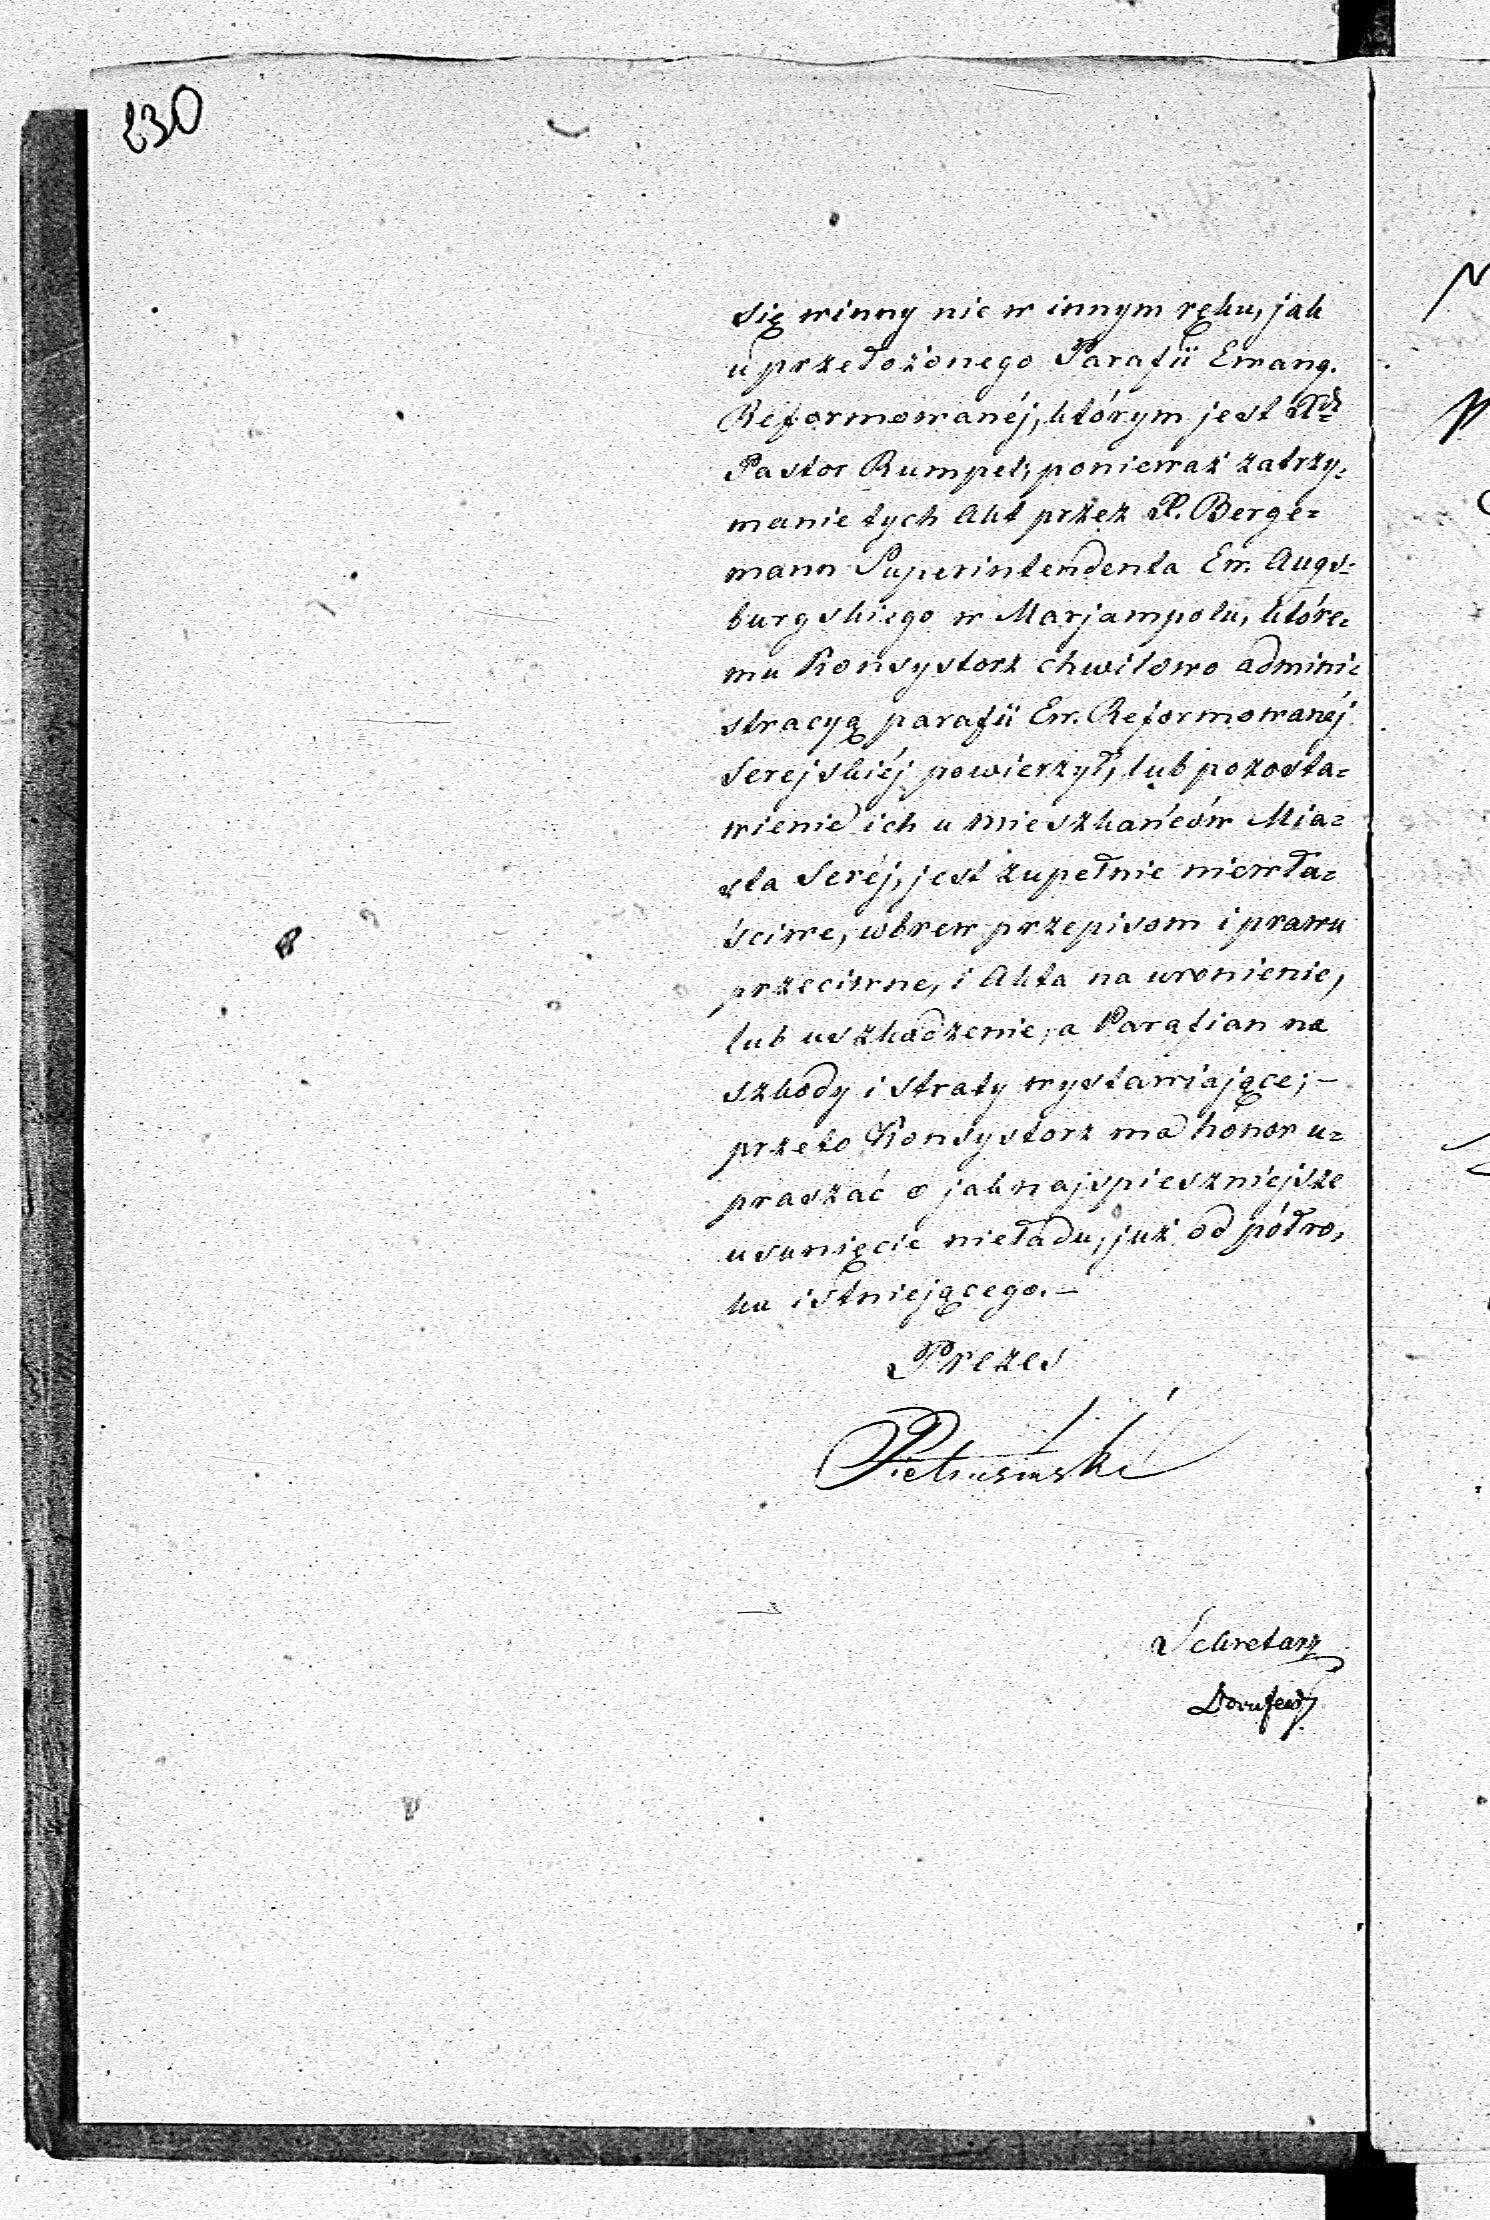 230
się winny nie w innym ręku, jak
u przełożonego Parafii Ewang.
Reformowanéj, którym jest
Pastor Rumpel; ponieważ zatrzy=
manie tych Akt przez X. Berge=
mann Superintendenta Ew. Augs=
burgskiego w Marjampolu, które=
mu Konsystorz chwilowo admini=
stracyą parafii Ew. Reformowanéj
Serejskiéj powierzył, lub pozosta=
wienie ich u mieszkańców Mia=
sta Seréj, jest zupełnie niewła=
ściwe, wbrew przepisom i prawu
przeciwne, i Akta na uronienie,
lub uszkodzenie, a Parafian na
szkody i straty wystawiające; —
przeto Konsystorz ma honor u=
praszać o jaknajspieszniejsze
usunięcie nieładu, już od półro=
ku istniejącego. —
Prezes
Pietrusiński
Sekretarz